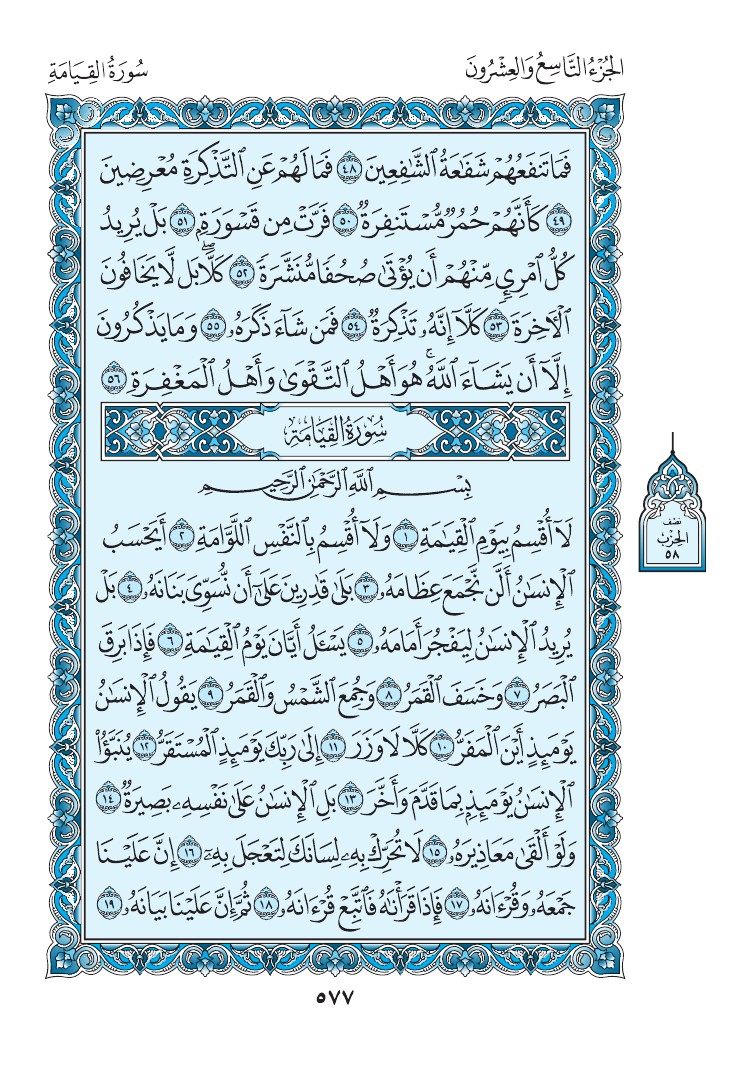 الجُزْءُ التَّاسِعُ وَالعِشْرُونَ
سُورَةُ القِيَامَةِ
فَمَا تَنفَعُهُمْ شَفَٰعَةُ ٱلشَّٰفِعِينَ ٤٨ فَمَا لَهُمْ عَنِ ٱلتَّذْكِرَةِ مُعْرِضِينَ
٤٩ كَأَنَّهُمْ حُمُرٌ مُّسْتَنفِرَةٌ ٥٠ فَرَّتْ مِن قَسْوَرَةِۭ ٥١ بَلْ يُرِيدُ
كُلُّ ٱمْرِئٍ مِّنْهُمْ أَن يُؤْتَىٰ صُحُفًا مُّنَشَّرَةً ٥٢ كَلَّاۖ بَل لَّا يَخَافُونَ
ٱلْأَخِرَةَ ٥٣ كَلَّآ إِنَّهُۥ تَذْكِرَةٌ ٥٤ فَمَن شَآءَ ذَكَرَهُۥ ٥٥ وَمَا يَذْكُرُونَ
إِلَّآ أَن يَشَآءَ ٱللَّهُۚ هُوَ أَهْلُ ٱلتَّقْوَىٰ وَأَهْلُ ٱلْمَغْفِرَةِ ٥٦
سُورَةُ القِيَامَةِ
بِسْمِ ٱللَّهِ ٱلرَّحْمَٰنِ ٱلرَّحِيمِ
لَآ أُقْسِمُ بِيَوْمِ ٱلْقِيَٰمَةِ ١ وَلَآ أُقْسِمُ بِٱلنَّفْسِ ٱللَّوَّامَةِ ٢ أَيَحْسَبُ
ٱلْإِنسَٰنُ أَلَّن نَّجْمَعَ عِظَامَهُۥ ٣ بَلَىٰ قَٰدِرِينَ عَلَىٰٓ أَن نُّسَوِّىَ بَنَانَهُۥ ٤ بَلْ
يُرِيدُ ٱلْإِنسَٰنُ لِيَفْجُرَ أَمَامَهُۥ ٥ يَسْـَٔلُ أَيَّانَ يَوْمُ ٱلْقِيَٰمَةِ ٦ فَإِذَا بَرِقَ
ٱلْبَصَرُ ٧ وَخَسَفَ ٱلْقَمَرُ ٨ وَجُمِعَ ٱلشَّمْسُ وَٱلْقَمَرُ ٩ يَقُولُ ٱلْإِنسَٰنُ
يَوْمَئِذٍ أَيْنَ ٱلْمَفَرُّ ١٠ كَلَّا لَا وَزَرَ ١١ إِلَىٰ رَبِّكَ يَوْمَئِذٍ ٱلْمُسْتَقَرُّ ١٢ يُنَبَّؤُا۟
ٱلْإِنسَٰنُ يَوْمَئِذٍۭ بِمَا قَدَّمَ وَأَخَّرَ ١٣ بَلِ ٱلْإِنسَٰنُ عَلَىٰ نَفْسِهِۦ بَصِيرَةٌ ١٤
وَلَوْ أَلْقَىٰ مَعَاذِيرَهُۥ ١٥ لَا تُحَرِّكْ بِهِۦ لِسَانَكَ لِتَعْجَلَ بِهِۦٓ ١٦ إِنَّ عَلَيْنَا
جَمْعَهُۥ وَقُرْءَانَهُۥ ١٧ فَإِذَا قَرَأْنَٰهُ فَٱتَّبِعْ قُرْءَانَهُۥ ١٨ ثُمَّ إِنَّ عَلَيْنَا بَيَانَهُۥ ١٩
نصف
الحزب
٥٨
٥٧٧